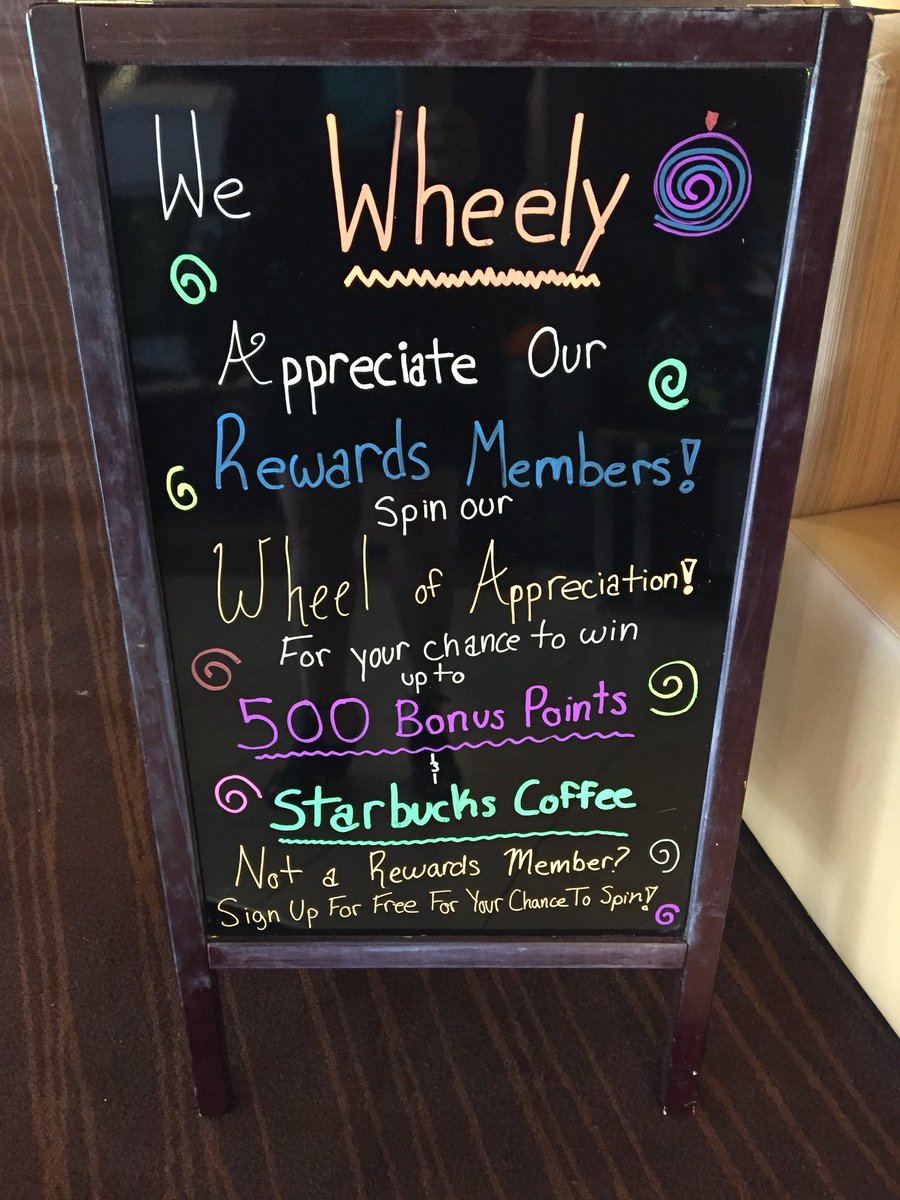 We Wheely
Appreciate Our
Rewards Members!
Spin our
Wheel of Appreciation!
For your chance to win
up to
500 Bonus Points
&
Starbucks Coffee
Not a Rewards Member?
Sign Up For Free For Your Chance To Spin!